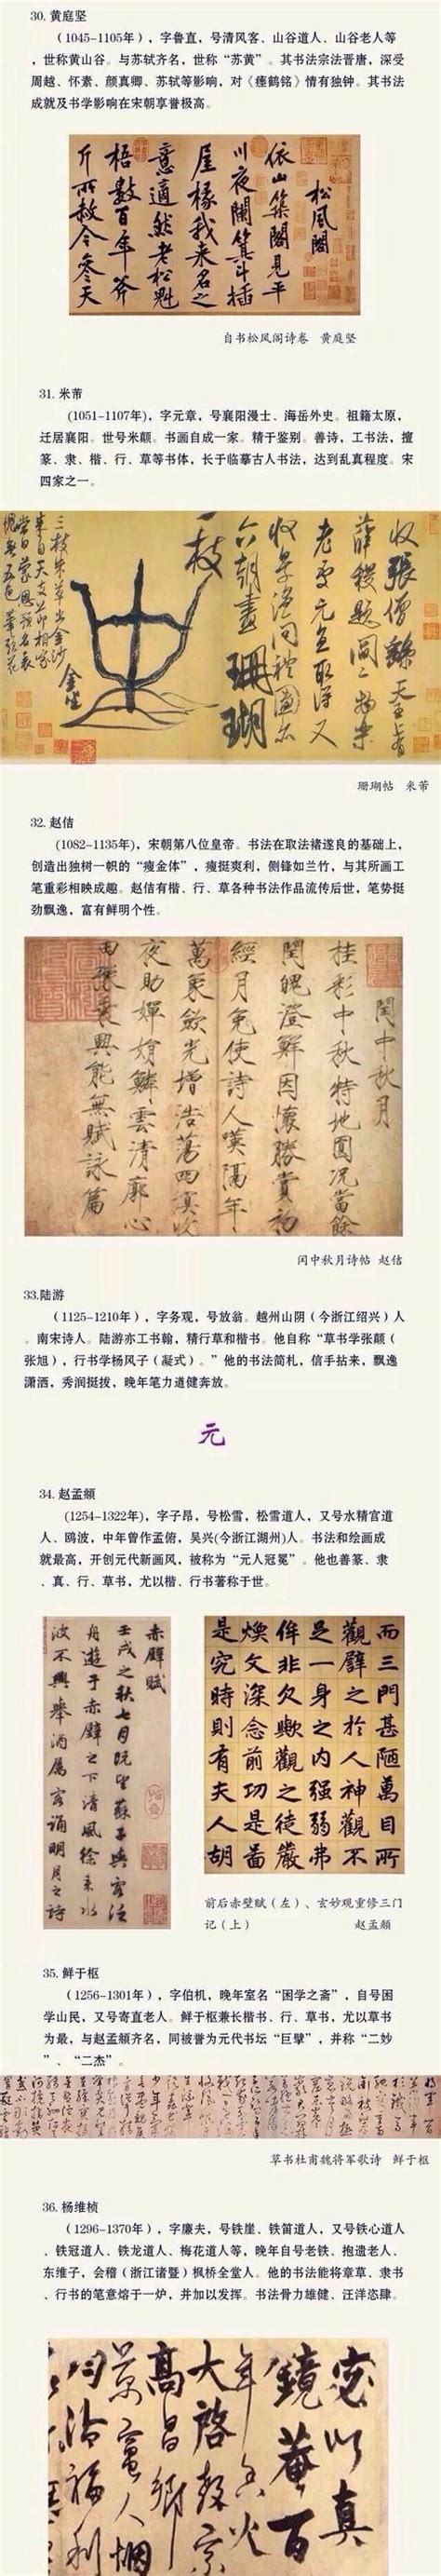 30. 黄庭坚
（1045-1105年），字鲁直，号清风客、山谷道人、山谷老人等
，世称黄山谷。与苏轼齐名，世称“苏黄”。其书法宗法晋唐，深受
周越、怀素、颜真卿、苏轼等影响，对《瘗鹤铭》情有独钟。其书法
成就及书学影响在宋朝享誉极高。
松风閣
依山築閣見平
川夜闌箕斗插
屋椽我来名之
意適然老松魁
梧數百年斧
斤所赦今参天
自书松风阁诗卷 黄庭坚
31. 米芾
（1051-1107年），字元章，号襄阳漫士、海岳外史。祖籍太原，
迁居襄阳。世号米颠。书画自成一家。精于鉴别。善诗，工书法，擅
篆、隶、楷、行、草等书体，长于临摹古人书法，达到乱真程度。宋
四家之一。
收張僧繇天王上有
薛稷題閻二物樂
老處元直取得又
收景温问禮圖亦
六朝畫珊瑚
一枝
金坐
三枝朱草出金沙
来自天支节相家
當日蒙恩预名表
愧無五色筆頭花
珊瑚帖 米芾
32. 赵佶
（1082-1135年），宋朝第八位皇帝。书法在取法褚遂良的基础上，
创造出独树一帜的“瘦金体”，瘦挺爽利，侧锋如兰竹，与其所画工
笔重彩相映成趣。赵佶有楷、行、草各种书法作品流传后世，笔势挺
劲飘逸，富有鲜明个性。
閏中秋月
桂彩中秋特地圓况當餘
閏魄澄鮮因懷勝賞初
經月免使詩人嘆隔年
萬象歛光增浩蕩四溟收
夜助嬋娟鱗雲清廓心
田豫乗興能無賦詠篇
闰中秋月诗帖 赵佶
33.陆游
（1125-1210年），字务观，号放翁。越州山阴（今浙江绍兴）人
。南宋诗人。陆游亦工书翰，精行草和楷书。他自称“草书学张颠（
张旭），行书学杨风子（凝式）。”他的书法简札，信手拈来，飘逸
潇洒，秀润挺拔，晚年笔力遒健奔放。
元
34. 赵孟頫
（1254-1322年），字子昂，号松雪，松雪道人，又号水精宫道
人、鸥波，中年曾作孟俯，吴兴(今浙江湖州)人。书法和绘画成
就最高，开创元代新画风，被称为“元人冠冕”。他也善篆、隶
、真、行、草书，尤以楷、行书著称于世。
赤壁賦
壬戌之秋七月既望蘇子與客泛
舟遊于赤壁之下清風徐来水
波不興舉酒属客誦明月之詩
而三門甚陋萬目所
觀臂之於人神觀不
足一身之内强弱弗
侔非欠歟觀之徒嚴
煥文深念前功是啚
是究時則有夫人胡
前后赤壁赋（左）、玄妙观重修三门
记（上） 赵孟頫
35. 鲜于枢
（1256-1301年），字伯机，晚年室名“困学之斋”，自号困
学山民，又号寄直老人。鲜于枢兼长楷书、行、草书，尤以草书
为最，与赵孟頫齐名，同被誉为元代书坛“巨擘”，并称“二妙
”、“二杰”。
草书杜甫魏将军歌诗 鲜于枢
36. 杨维桢
（1296-1370年），字廉夫，号铁崖、铁笛道人，又号铁心道人
、铁冠道人、铁龙道人、梅花道人等，晚年自号老铁、抱遗老人、
东维子，会稽（浙江诸暨）枫桥全堂人。他的书法能将章草、隶书
、行书的笔意熔于一炉，并加以发挥。书法骨力雄健、汪洋恣肆。
宓以真
鏡菴百
年香火
大啓教宗
高昌鄉
景富人烟
均沾福利